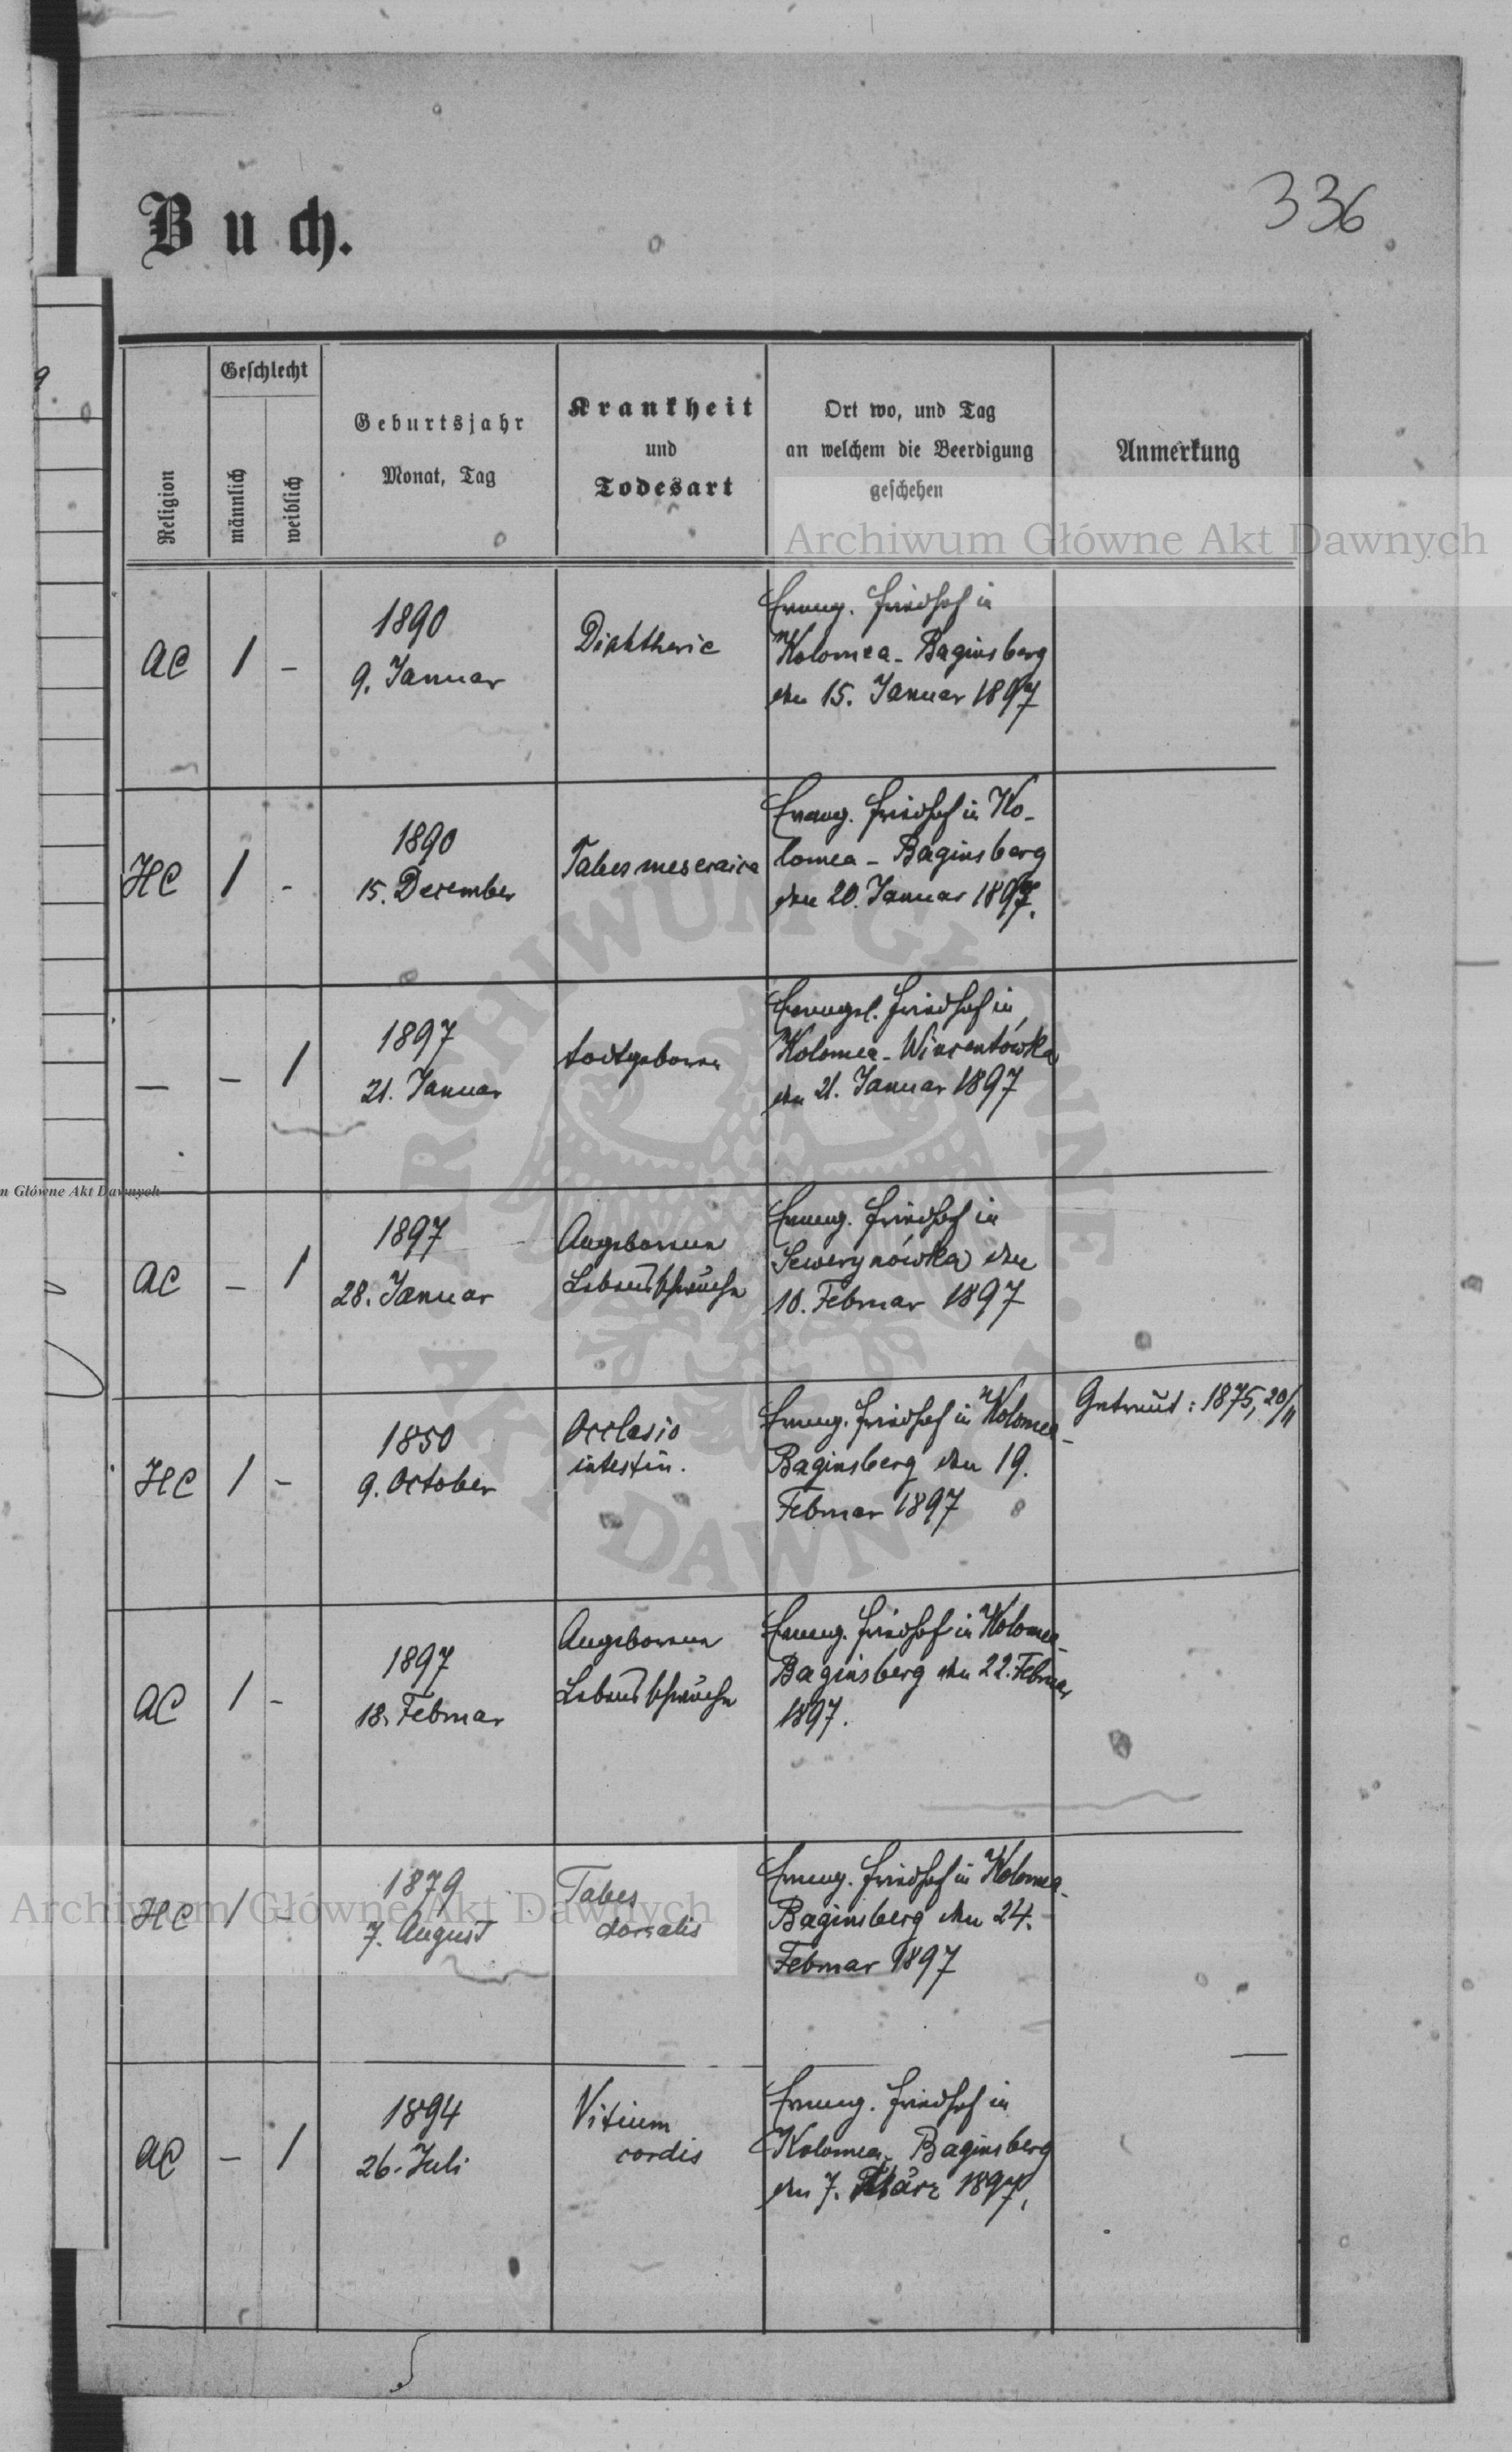 336
Buch.
Religion
Geschlecht
männlich
weiblich
Geburtsjahr
Monat, Tag
Krankheit
und
Todesart
Ort wo, und Tag
an welchem die Beerdigung
geschehen
Anmerkung
Archiwum Główne Akt Dawnych
AC
1
-
1890
9. Januar
Diphtherie
Evang. Friedhof in
Kolomea - Baginsberg
den 15. Januar 1897
HC
1
-
1890
15. December
Tabes meseraica
Evang. Friedhof in Ko-
lomea - Baginsberg
den 20. Januar 1897.
—
—
1
1897
21. Januar
todtgeboren
Evangel. Friedhof in
Kolomea - Wincentówka
den 21. Januar 1897
n Główne Akt Dawnych
AC
—
1
1897
28. Januar
Angeborene
Lebensschwäche
Evang. Friedhof in
Sewerynówka den
10. Februar 1897
HC
1
-
1850
9. October
Occlusio
intestin.
Evang. Friedhof in Kolomea-
Baginsberg den 19.
Februar 1897
Getraut: 1875, 20/11
AC
1
-
1897
18. Februar
Angeborene
Lebensschwäche
Evang. Friedhof in Kolomea-
Baginsberg den 22. Februar
1897.
HC
1
-
1879
7. August
Tabes
dorsalis
Evang. Friedhof in Kolomea-
Baginsberg den 24.
Februar 1897
Archiwum Główne Akt Dawnych
AC
—
1
1894
26. Juli
Vitium
cordis
Evang. Friedhof in
Kolomea - Baginsberg
den 7. März 1897.
ARCHIWUM GŁÓWNE AKT DAWNYCH